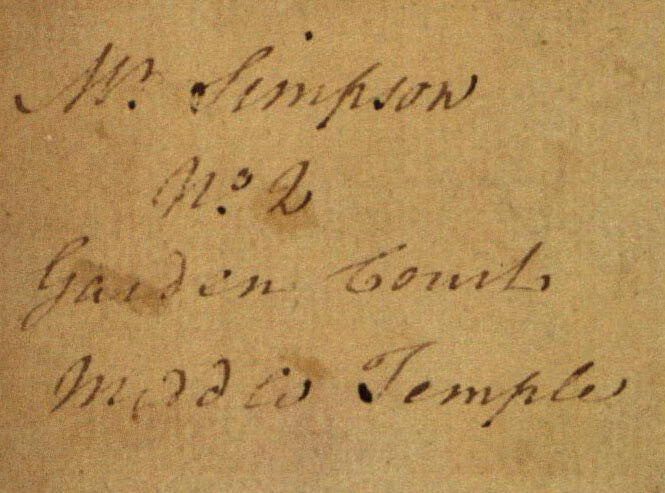 Mr. Simpson
No. 2
Garden Court
Middle Temple